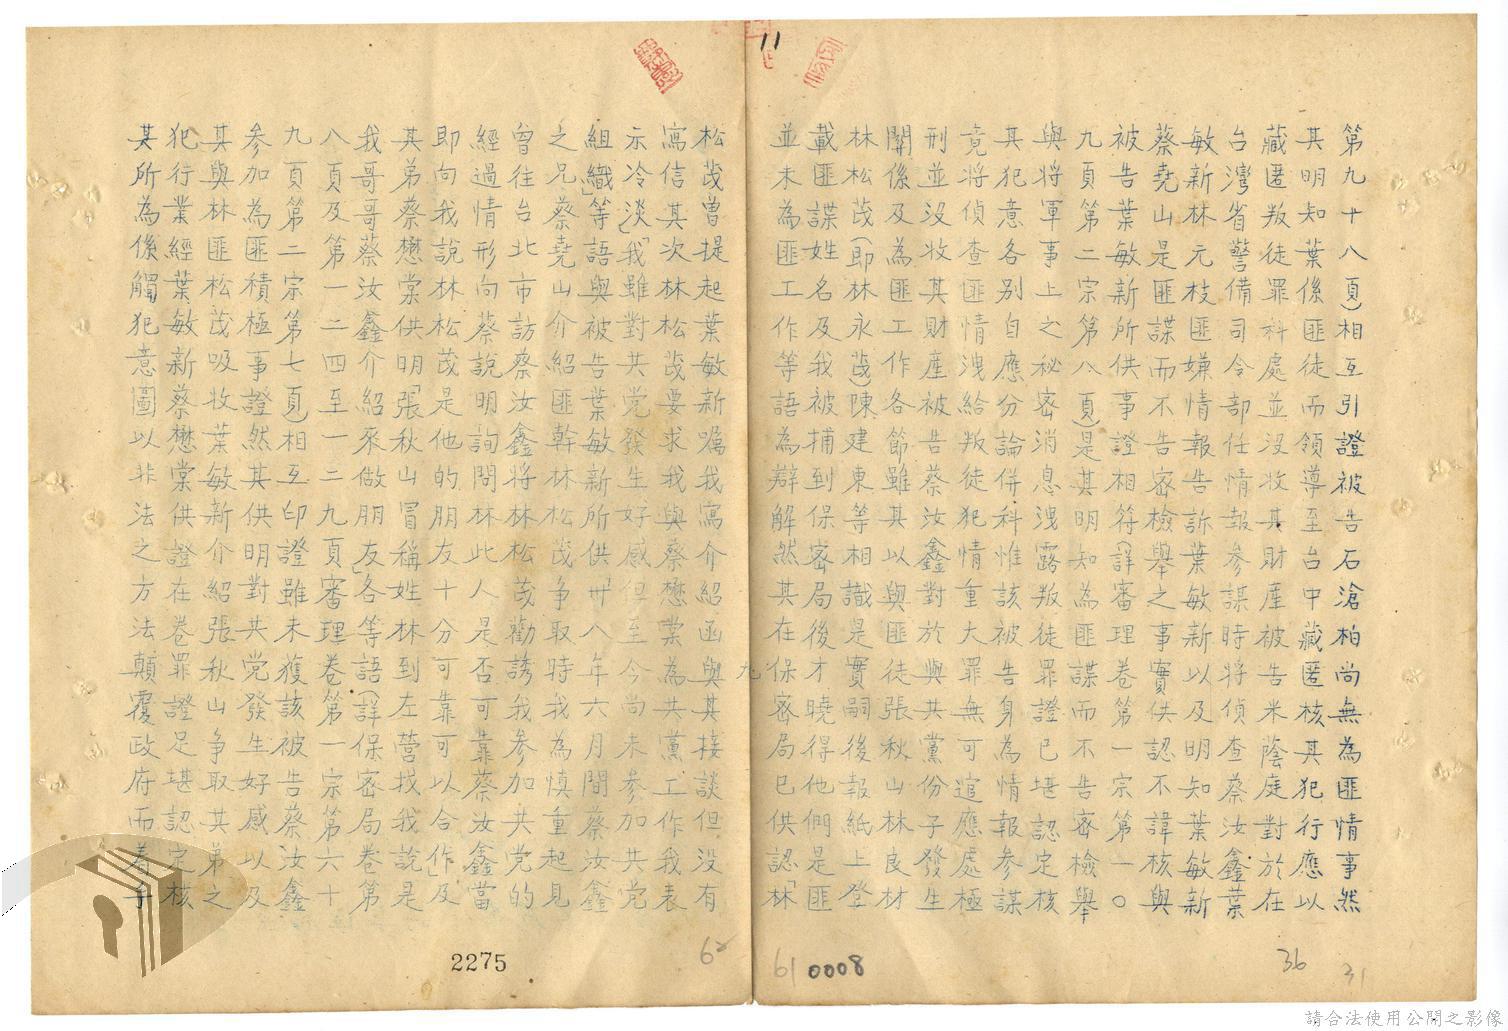 11
第九十八頁)相互引證被告石滄柏尚無為匪情事然
其明知葉係匪徒而領導至台中藏匿核其犯行應以
藏匿叛徒罪科處並沒收其財產被告米蔭庭對於在
台灣省警備司令部任情報參謀時將偵查蔡汝鑫葉
敏新林元枝匪嫌情報告訴葉敏新以及明知葉敏新
蔡堯山是匪諜而不告密檢舉之事實供認不諱核與
被告葉敏新所供事證相符(詳審理卷第一宗第一〇
九頁第二宗第八頁)是其明知為匪諜而不告密檢舉
與將軍事上之秘密消息洩露叛徒罪證已堪認定核
其犯意各別自應份論併科惟該被告身為情報參謀
竟將偵查匪情洩給叛徒犯情重大罪無可逭應處極
刑並沒收其財產被告蔡汝鑫對於與共黨份子發生
關係及為匪工作各節雖其以與匪徒張秋山林良材
林松茂(即林永茂)陳建東等相識是實嗣後報紙上登
載匪諜姓名及我被捕到保密局後才曉得他們是匪
並未為匪工作等語為辯解然其在保密局已供認「林
九
松茂曾提起葉敏新囑我寫介紹函與其接談但沒有
寫信其次林松茂要求我與蔡懋棠為共黨工作我表
示冷淡」「我雖對共党發生好感但至今尚未參加共党
組織」等語與被告葉敏新所供「卅八年六月間蔡汝鑫
之兄蔡堯山介紹匪幹林松茂争取時我為慎重起見
曾往台北市訪蔡汝鑫將林松茂勸誘我參加共党的
經過情形向蔡說明詢問林此人是否可靠蔡汝鑫當
即向我說林松茂是他的朋友十分可靠可以合作」及
其弟蔡懋棠供明「張秋山冒稱姓林到左營找我說是
我哥哥蔡汝鑫介紹來做朋友」各等語(詳保密局卷第
八頁及第一二四至一二九頁審理卷第一宗第六十
九頁第二宗第七頁)相互印證雖未獲該被告蔡汝鑫
參加為匪積極事證然其供明對共党發生好感以及
其與林匪松茂吸收葉敏新介紹張秋山争取其弟之
犯行業經葉敏新蔡懋棠供證在卷罪證足堪認定核
其所為係觸犯意圖以非法之方法顛覆政府而着手
2275
62
61
0008
36
31
請合法使用公開之影像